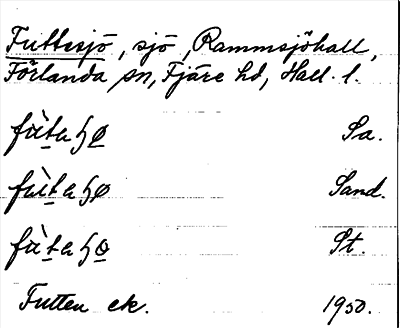 Futtesjö, sjö, Rammsjöhall,
Förlanda sn, Fjäre hd, Hall. l.
fùtahø Sa.
fùtahø Sand.
fùtaho St.
Futten ek. 1950.